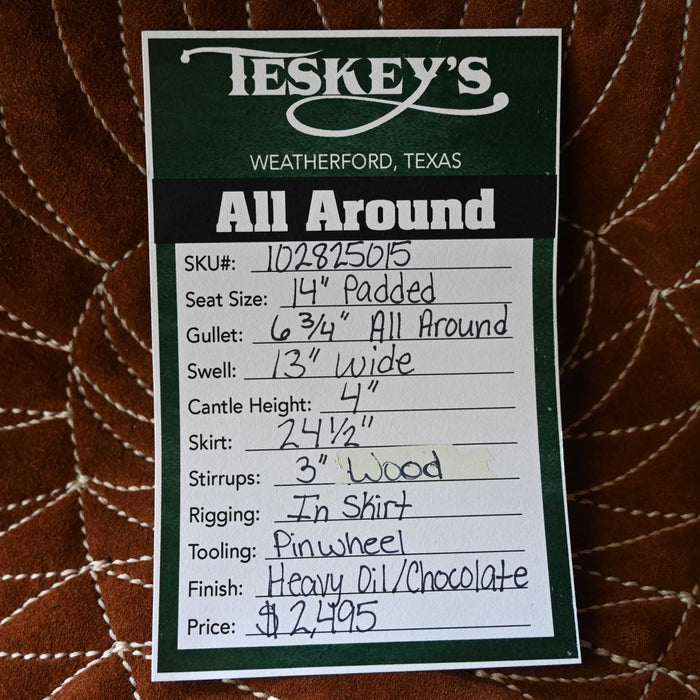 TESKEY'S
WEATHERFORD, TEXAS
All Around
SKU#: 102825015
Seat Size: 14" Padded
Gullet: 6 3/4" All Around
Swell: 13" Wide
Cantle Height: 4"
Skirt: 24 1/2"
Stirrups: 3" Wood
Rigging: In Skirt
Tooling: Pinwheel
Finish: Heavy Oil/Chocolate
Price: $2,495